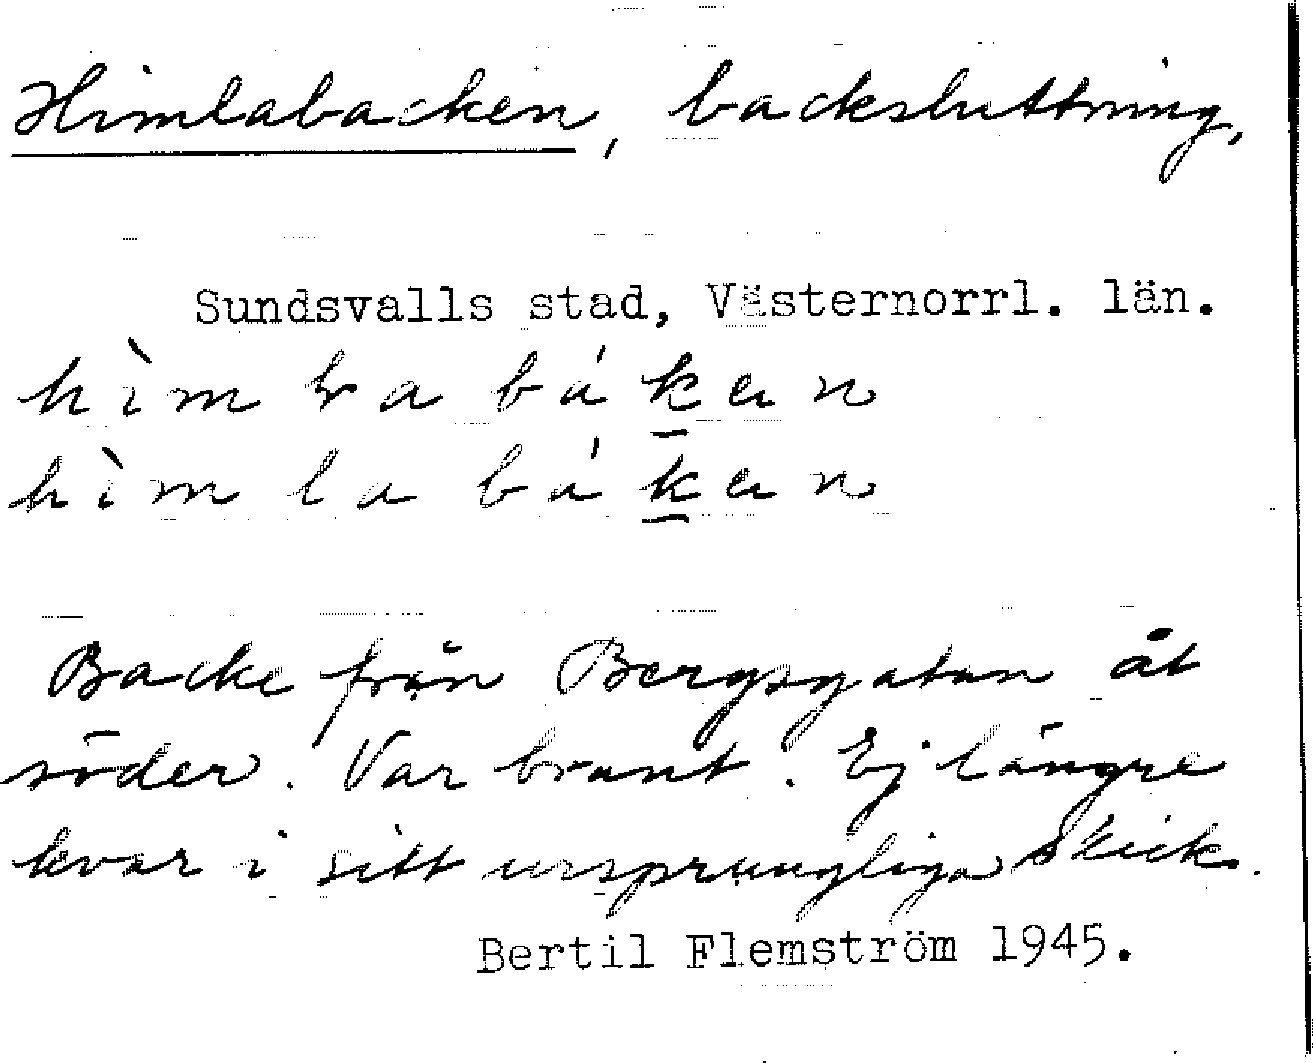 Himlabacken, backsluttning,
Sundsvalls stad, Västernorrl. län.
hìm la báken
hìm la bákan
Backe från Bergsgatan åt
söder. Var brant. Ej längre
kvar i sitt ursprungliga skick.
Bertil Flemström 1945.